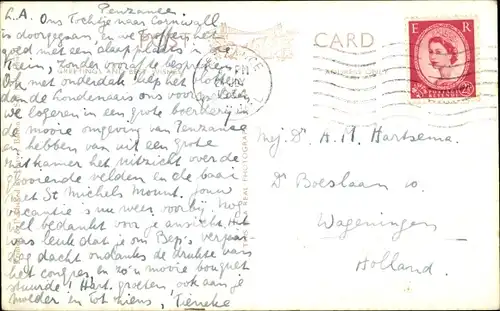 Penzance
L.A. Ons tochtje naar Cornwall
is doorgegaan, en we troffen het
goed met een slaapplaats in de
trein, zonder vooraf te bespreken.
Ook met onderdak liep het vlotter
dan de Londenaars ons voorspelden
we logeren in een grote boerderij in
de mooie omgeving van Penzance
en hebben van uit een grote
zitkamer het uitzicht over de
glooiende velden en de baai
met St Michels Mount. Jouw
vacantie is nu weer voorbij. Nog
wel bedankt voor je ansicht. Het
was leuk dat je om Bep's verjaar-
dag dacht ondanks de drukte van
het congres, en zo'n mooie bouquet
stuurde! Hart. groeten, ook aan je
moeder en tot ziens, Tieneke
CARD
E R
Mej. Dr H. M. Hartsema
Dr Boeslaan
Wageningen
Holland